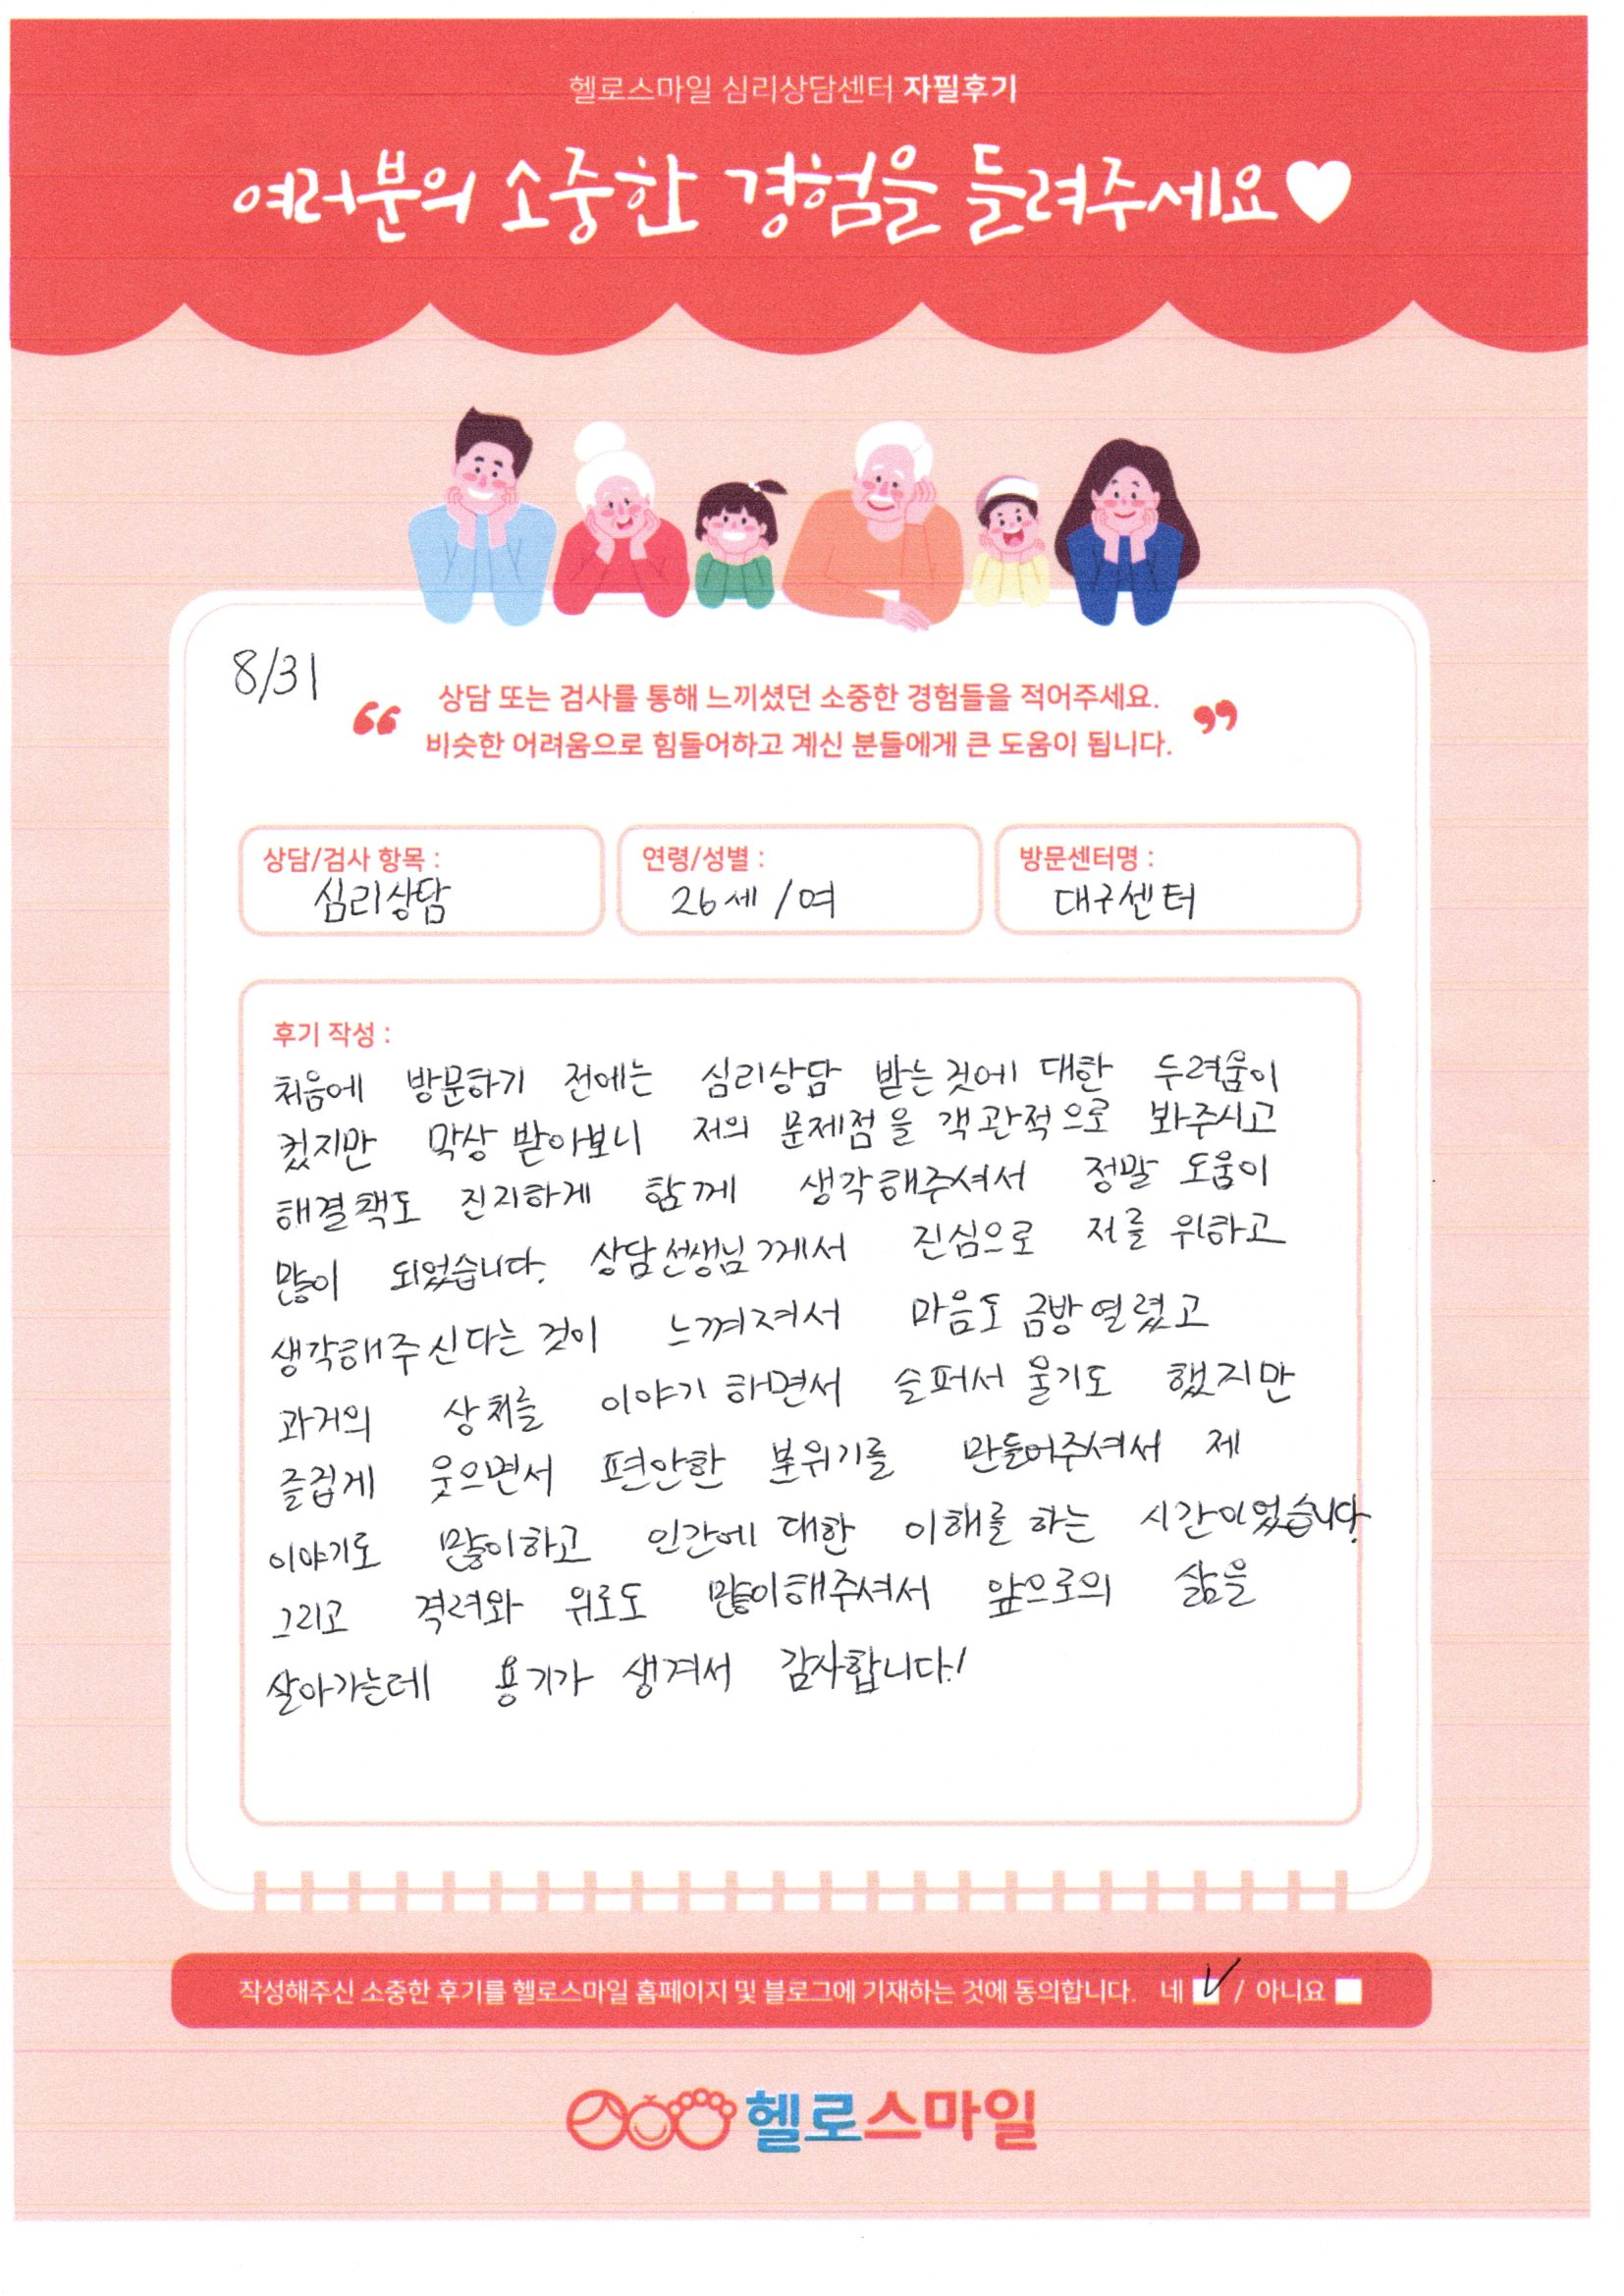 헬로스마일 심리상담센터 자필후기
여러분의 소중한 경험을 들려주세요♥
8/31
“ 상담 또는 검사를 통해 느끼셨던 소중한 경험들을 적어주세요. ”
비슷한 어려움으로 힘들어하고 계신 분들에게 큰 도움이 됩니다.
상담/검사 항목 : 연령/성별 : 방문센터명 :
심리상담 26세 / 여 대구센터
후기 작성 :
처음에 방문하기 전에는 심리상담 받는것에 대한 두려움이
컸지만 막상 받아보니 저의 문제점을 객관적으로 봐주시고
해결책도 진지하게 함께 생각해주셔서 정말 도움이
많이 되었습니다. 상담선생님께서 진심으로 저를 위하고
생각해주신다는 것이 느껴져서 마음도 금방 열렸고
과거의 상처를 이야기 하면서 슬퍼서 울기도 했지만
즐겁게 웃으면서 편안한 분위기를 만들어주셔서 제
이야기도 많이하고 인간에 대한 이해를 하는 시간이었습니다.
그리고 격려와 위로도 많이해주셔서 앞으로의 삶을
살아가는데 용기가 생겨서 감사합니다!
작성해주신 소중한 후기를 헬로스마일 홈페이지 및 블로그에 기재하는 것에 동의합니다. 네 ☑ / 아니요 ☐
헬로스마일